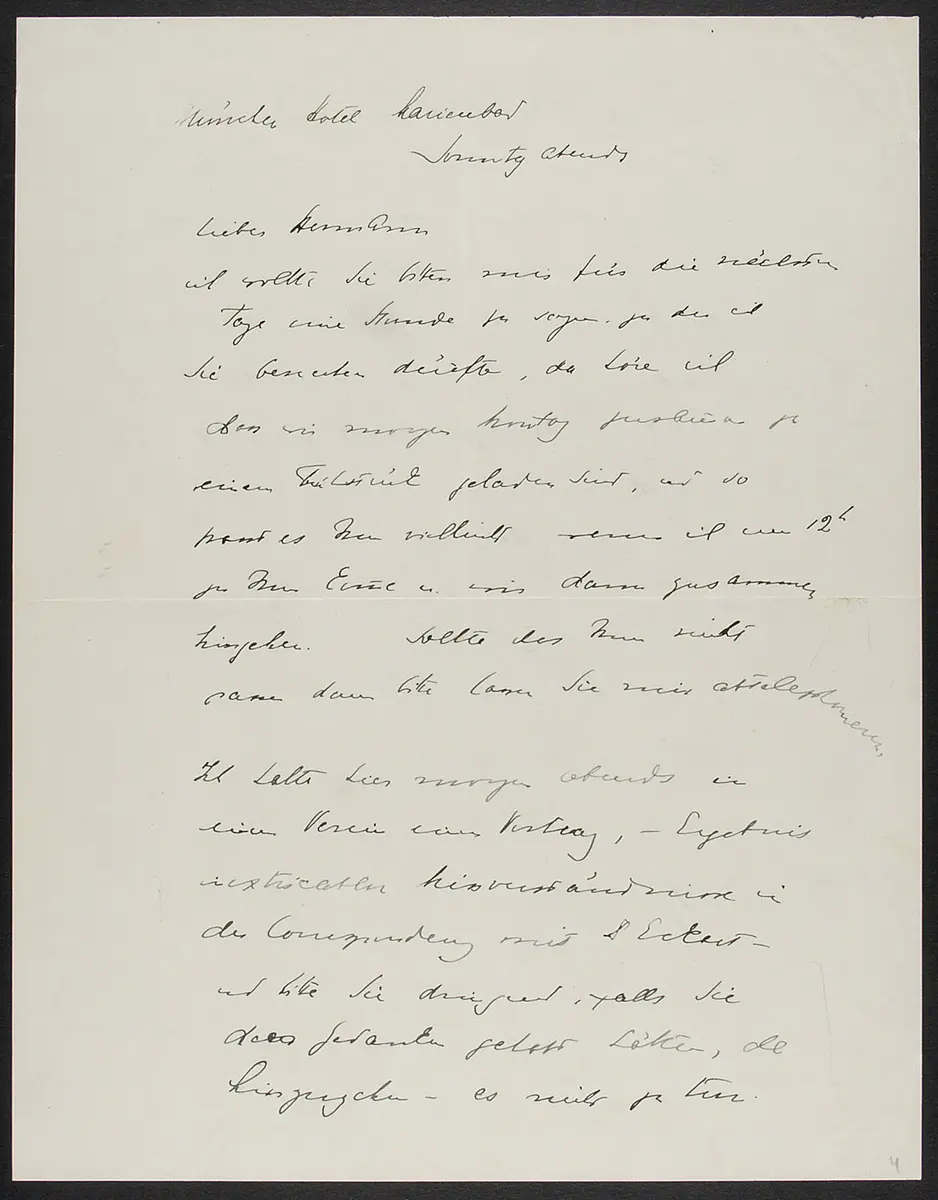 München Hotel Marienbad
Sonntag abends
Lieber Herrmann
ich wollte Sie bitten mir für die nächsten
Tage eine Stunde zu sagen, zu der ich
Sie besuchen dürfte, da höre ich
dass wir morgen Montag zusammen zu
einem Frühstück geladen sind, und so
passt es Ihnen vielleicht wenn ich um 12h
zu Ihnen komme u. wir dann zusammen
hingehen. Sollte das Ihnen nicht
passen dann bitte lassen Sie mir abtelephonieren.
Ich halte hier morgen abends in
einem Verein einen Vortrag, – Ergebnis
inextricabler Missverständnisse in
der Correspondenz mit D Eckart –
und bitte Sie dringend, falls Sie
den Gedanken gehabt hätten, da
hinzugehen – es nicht zu tun.
4